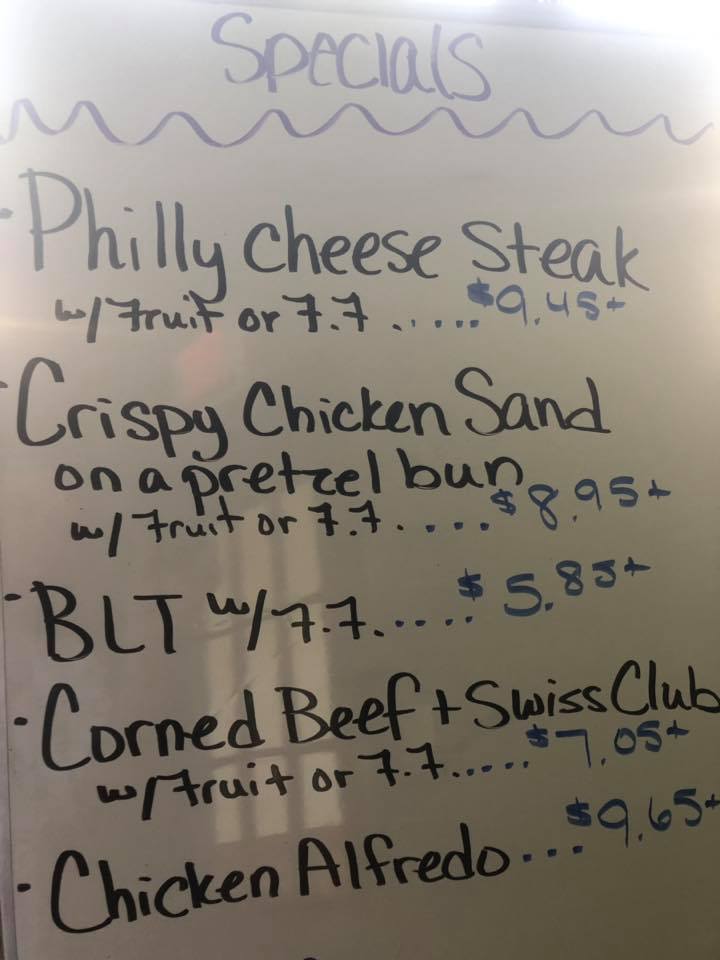 Specials
Philly Cheese Steak
w/ Fruit or F.F. ..... $9.45+
Crispy Chicken Sand
on a pretzel bun
w/ Fruit or F.F. .... $8.95+
BLT w/ F.F. ..... $5.85+
Corned Beef + Swiss Club
w/ Fruit or F.F. ..... $7.05+
Chicken Alfredo ... $9.65+